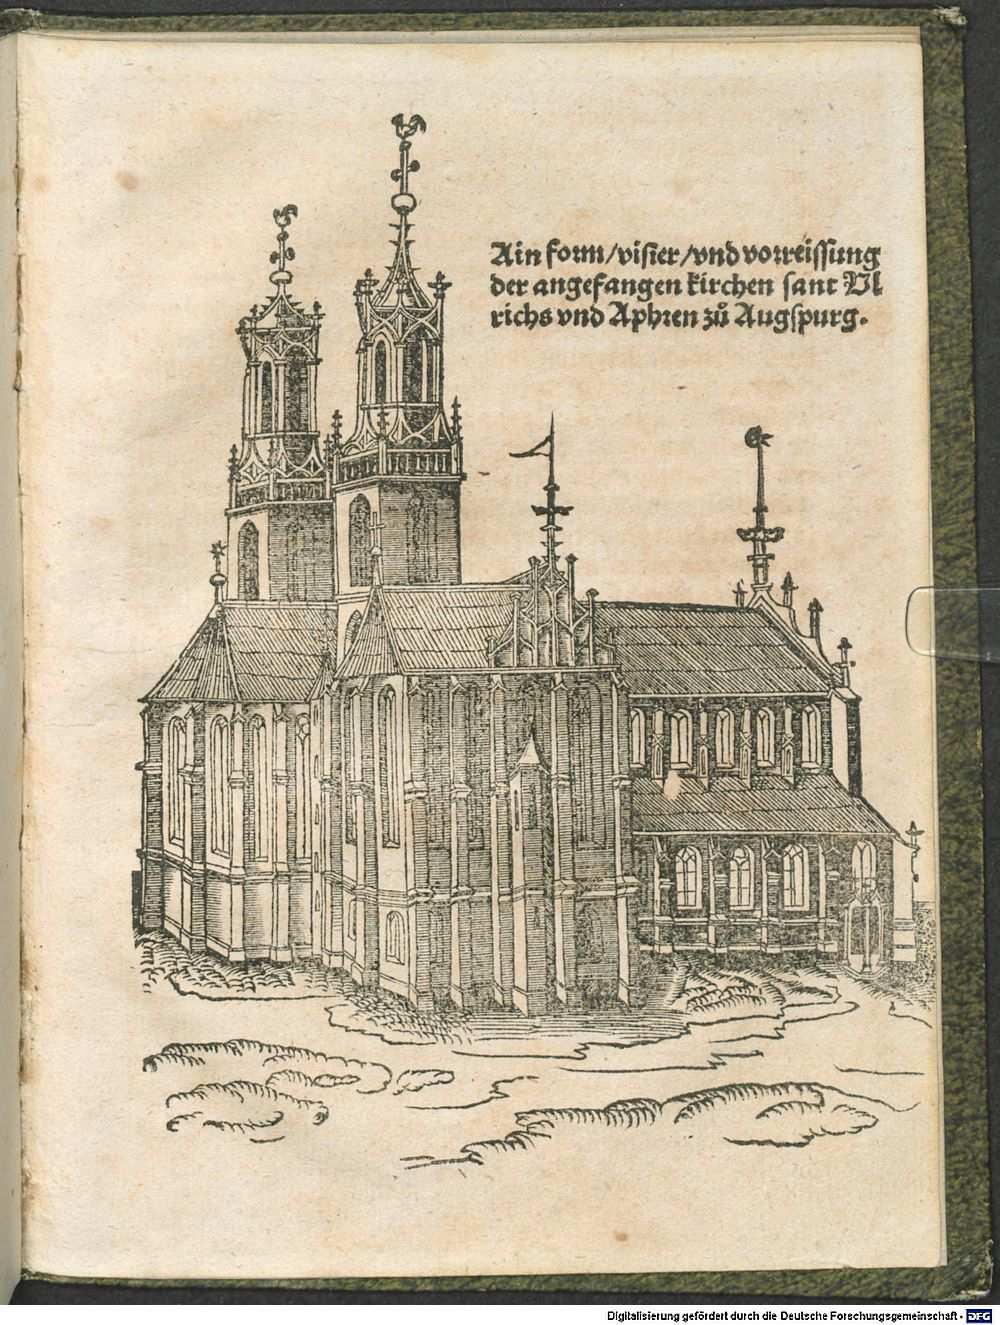 Ain form/visier/vnd vorreissung
der angefangen kirchen sant Vl
richs vnd Aphren zů Augspurg.
Digitalisierung gefördert durch die Deutsche Forschungsgemeinschaft - DFG